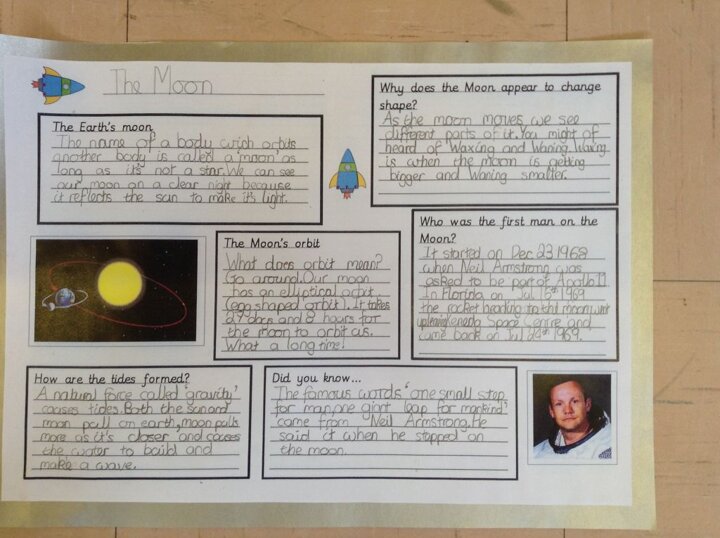 The Moon
The Earth's moon
The name of a body wich orbits
another body is called a 'moon' as
long as it's not a star. We can see
our moon on a clear night because
it reflects the sun to make it's light.
Why does the Moon appear to change
shape?
As the moon moves we see
different parts of it. You might of
heard of Waxing and Waning. Waxing
is when the moon is getting
bigger and Waning smaller.
The Moon's orbit
What does orbit mean?
Go around. Our moon
has an elliptical orbit
(egg shaped orbit). It takes
27 days and 8 hours for
the moon to orbit us.
What a long time!
Who was the first man on the
Moon?
It started on Dec 23 1968
when Neil Armstrong was
asked to be part of Apollo 11
In Florida on Jul 16th 1969
the rocket heading to the moon went
up Kenedy Space Centre and
came back on Jul 24th 1969.
How are the tides formed?
A natural force called 'gravity'
causes tides. Both the sun and
moon pull on earth, moon pulls
more as it's closer and causes
the water to build and
make a wave.
Did you know...
The famous words 'one small step
for man, one giant leap for mankind'
came from Neil Armstrong. He
said it when he stepped on
the moon.